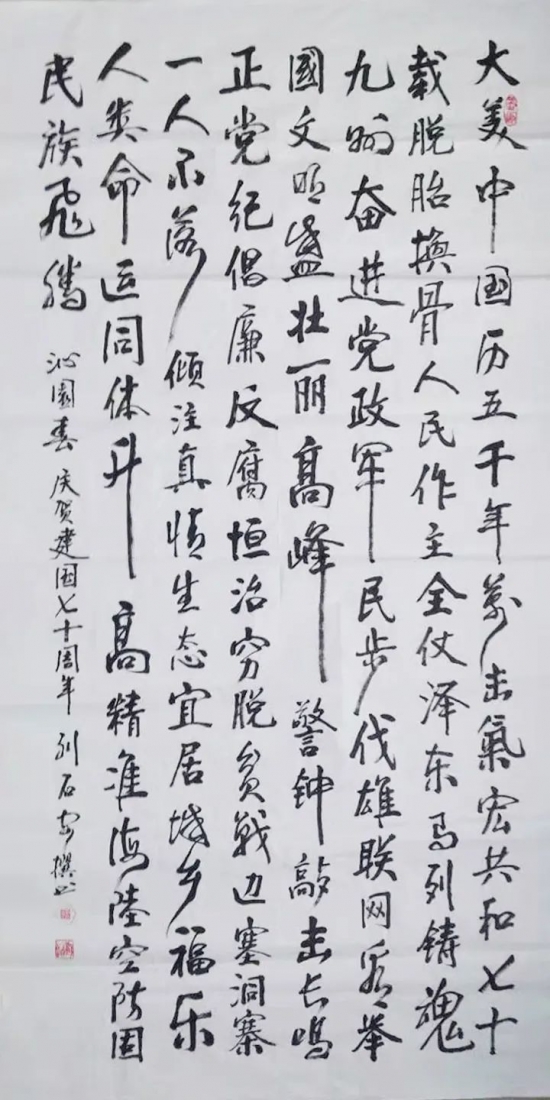 大美中国历五千年萬氣宏共和七十
載脱胎換骨人民作主全仗泽东马列铸魂
九州奋进党政军民步伐雄联网举
國文明盛壮丽高峰警钟敲击长鸣
正党纪倡廉反腐恒治穷脱贫战边塞洞寨
一人不落倾注真情生态宜居城乡福乐
人类命运同体升高精准海陸空防固
民族飞腾 沁園春 庆贺建国七十周年 列石撰书